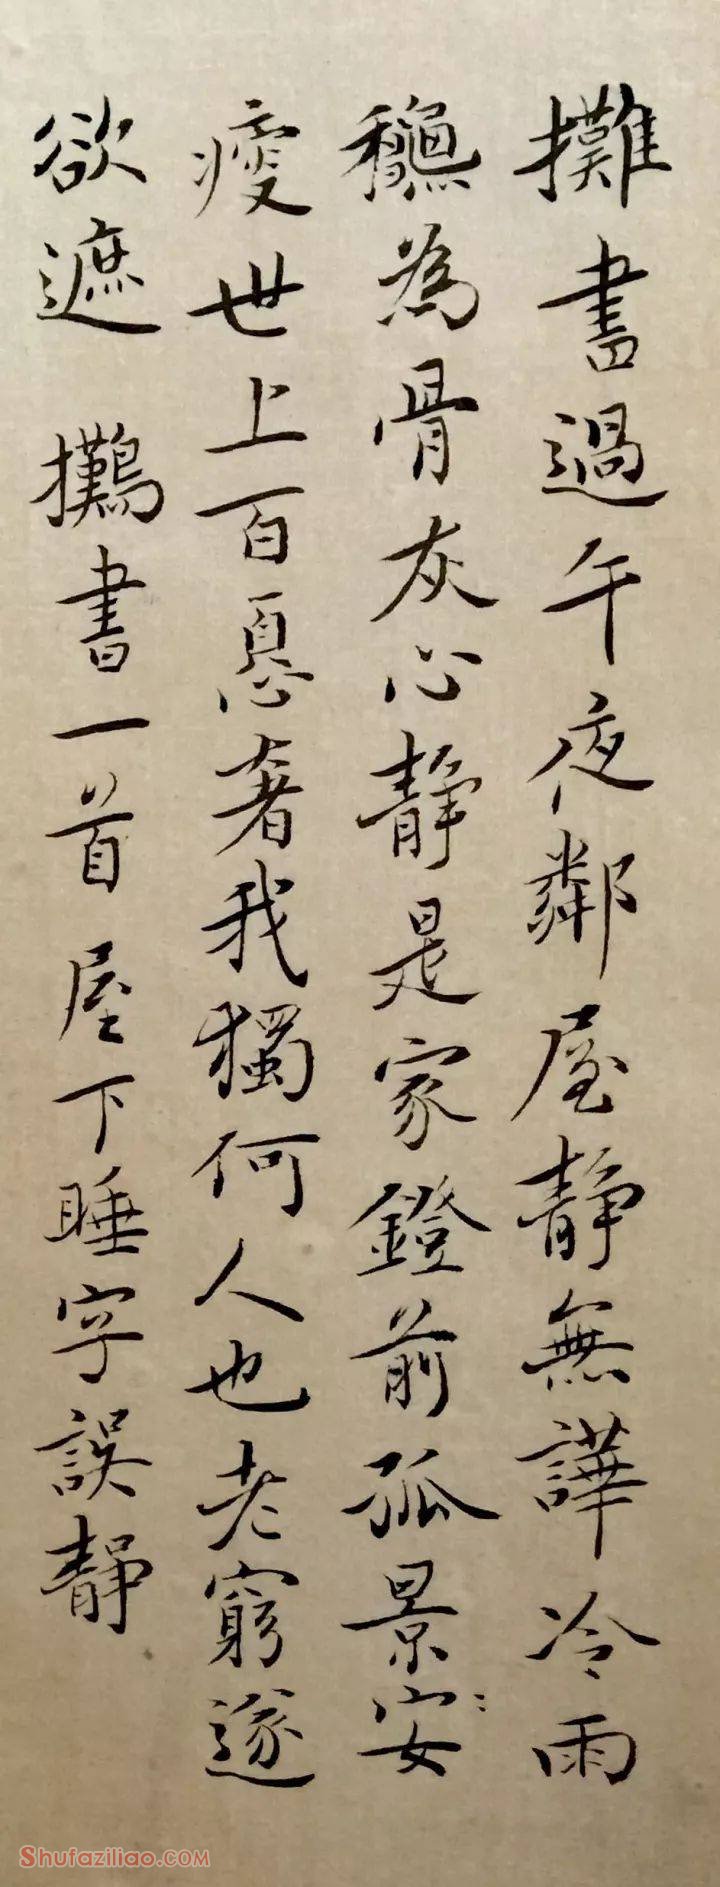 攤書過午夜鄰屋靜無譁冷雨
龝為骨灰心靜是家鐙前孤景安〻
瘦世上百憂奢我獨何人也老窮遂
欲遮 攤書一首 屋下睡字誤靜
Shufaziliao.COM